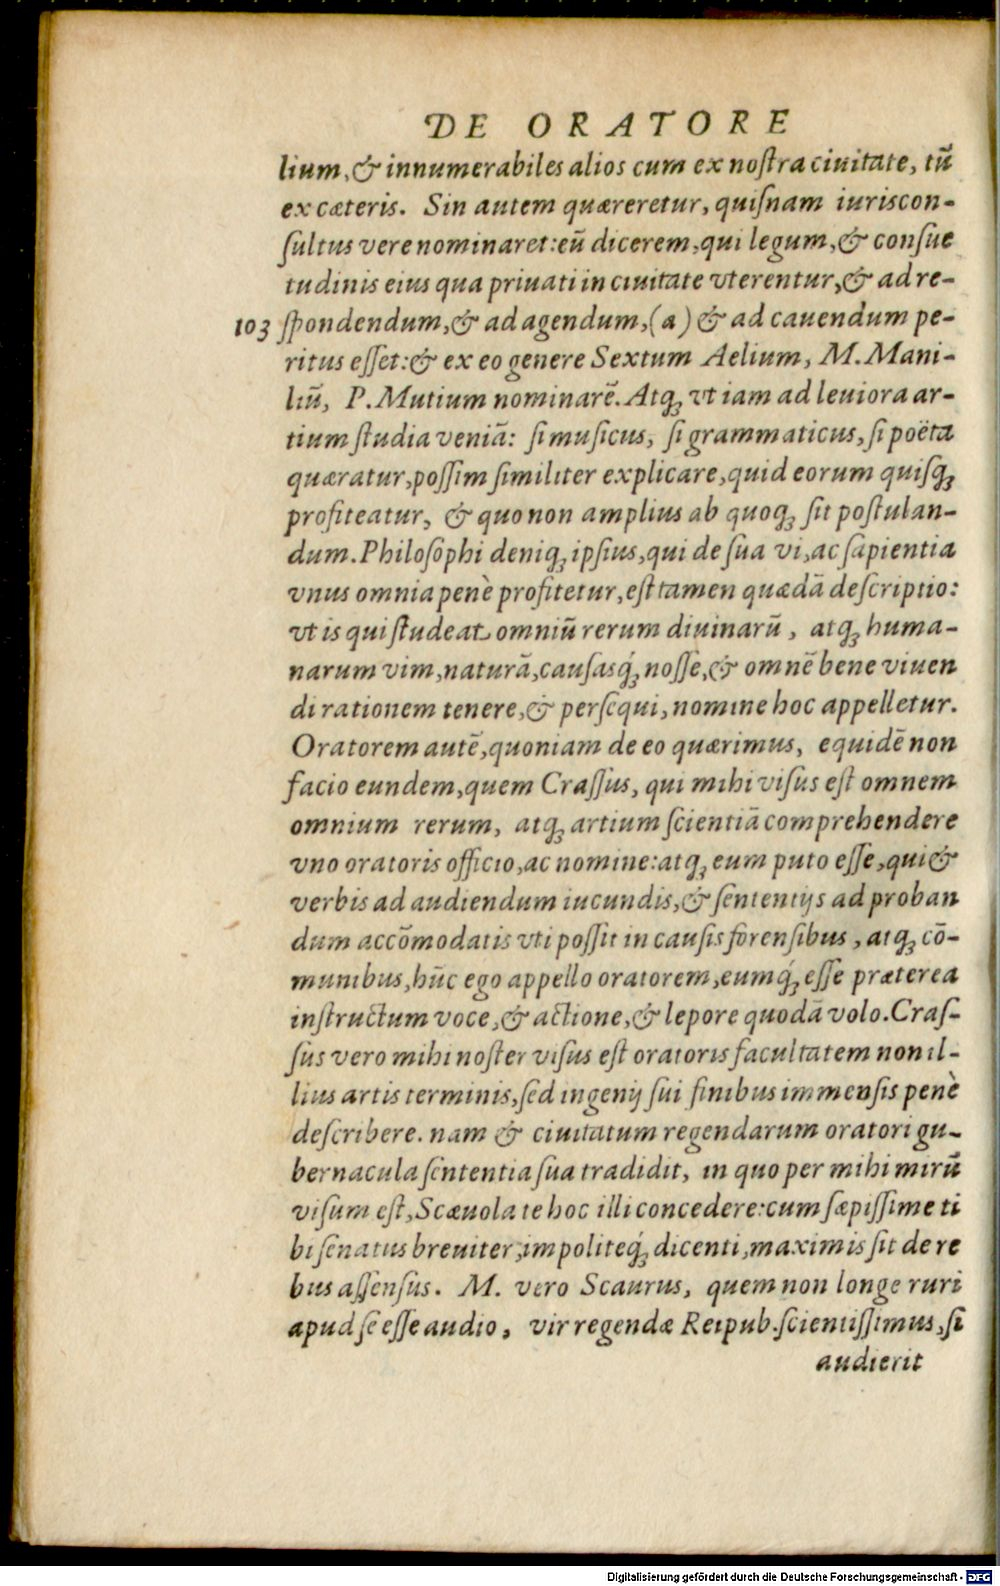 DE ORATORE
lium, & innumerabiles alios cum ex noſtra ciuitate, tū
ex cæteris. Sin autem quæreretur, quiſnam iuriscon-
ſultus vere nominaret: eū dicerem, qui legum, & conſue
tudinis eius qua priuati in ciuitate vterentur, & ad re-
103 ſpondendum, & ad agendum, (a) & ad cauendum pe-
ritus eſſet: & ex eo genere Sextum Aelium, M. Mani-
liū, P. Mutium nominarē. Atq; vt iam ad leuiora ar-
tium ſtudia veniā: ſi muſicus, ſi grammaticus, ſi poëta
quæratur, poſſim ſimiliter explicare, quid eorum quiſq;
profiteatur, & quo non amplius ab quoq; ſit poſtulan-
dum. Philoſophi deniq; ipſius, qui de ſua vi, ac ſapientia
vnus omnia penè profitetur, eſt tamen quædā deſcriptio:
vt is qui ſtudeat omniū rerum diuinarū, atq; huma-
narum vim, naturā, cauſasq́; noſſe, & omnē bene viuen
di rationem tenere, & perſequi, nomine hoc appelletur.
Oratorem autē, quoniam de eo quærimus, equidē non
facio eundem, quem Craſſus, qui mihi viſus eſt omnem
omnium rerum, atq; artium ſcientiā comprehendere
vno oratoris officio, ac nomine: atq; eum puto eſſe, qui &
verbis ad audiendum iucundis, & ſententijs ad proban
dum accōmodatis vti poſſit in cauſis forenſibus, atq; cō-
munibus, hūc ego appello oratorem, eumq́; eſſe præterea
inſtructum voce, & actione, & lepore quodā volo. Craſ-
ſus vero mihi noſter viſus eſt oratoris facultatem non il-
lius artis terminis, ſed ingenij ſui finibus immenſis penè
deſcribere. nam & ciuitatum regendarum oratori gu-
bernacula ſententia ſua tradidit, in quo per mihi mirū
viſum eſt, Scæuola te hoc illi concedere: cum ſæpiſſime ti
bi ſenatus breuiter, impoliteq́; dicenti, maximis ſit de re
bus aſſenſus. M. vero Scaurus, quem non longe ruri
apud ſe eſſe audio, vir regendæ Reipub. ſcientiſſimus, ſi
audierit
Digitalisierung gefördert durch die Deutsche Forschungsgemeinschaft - DFG